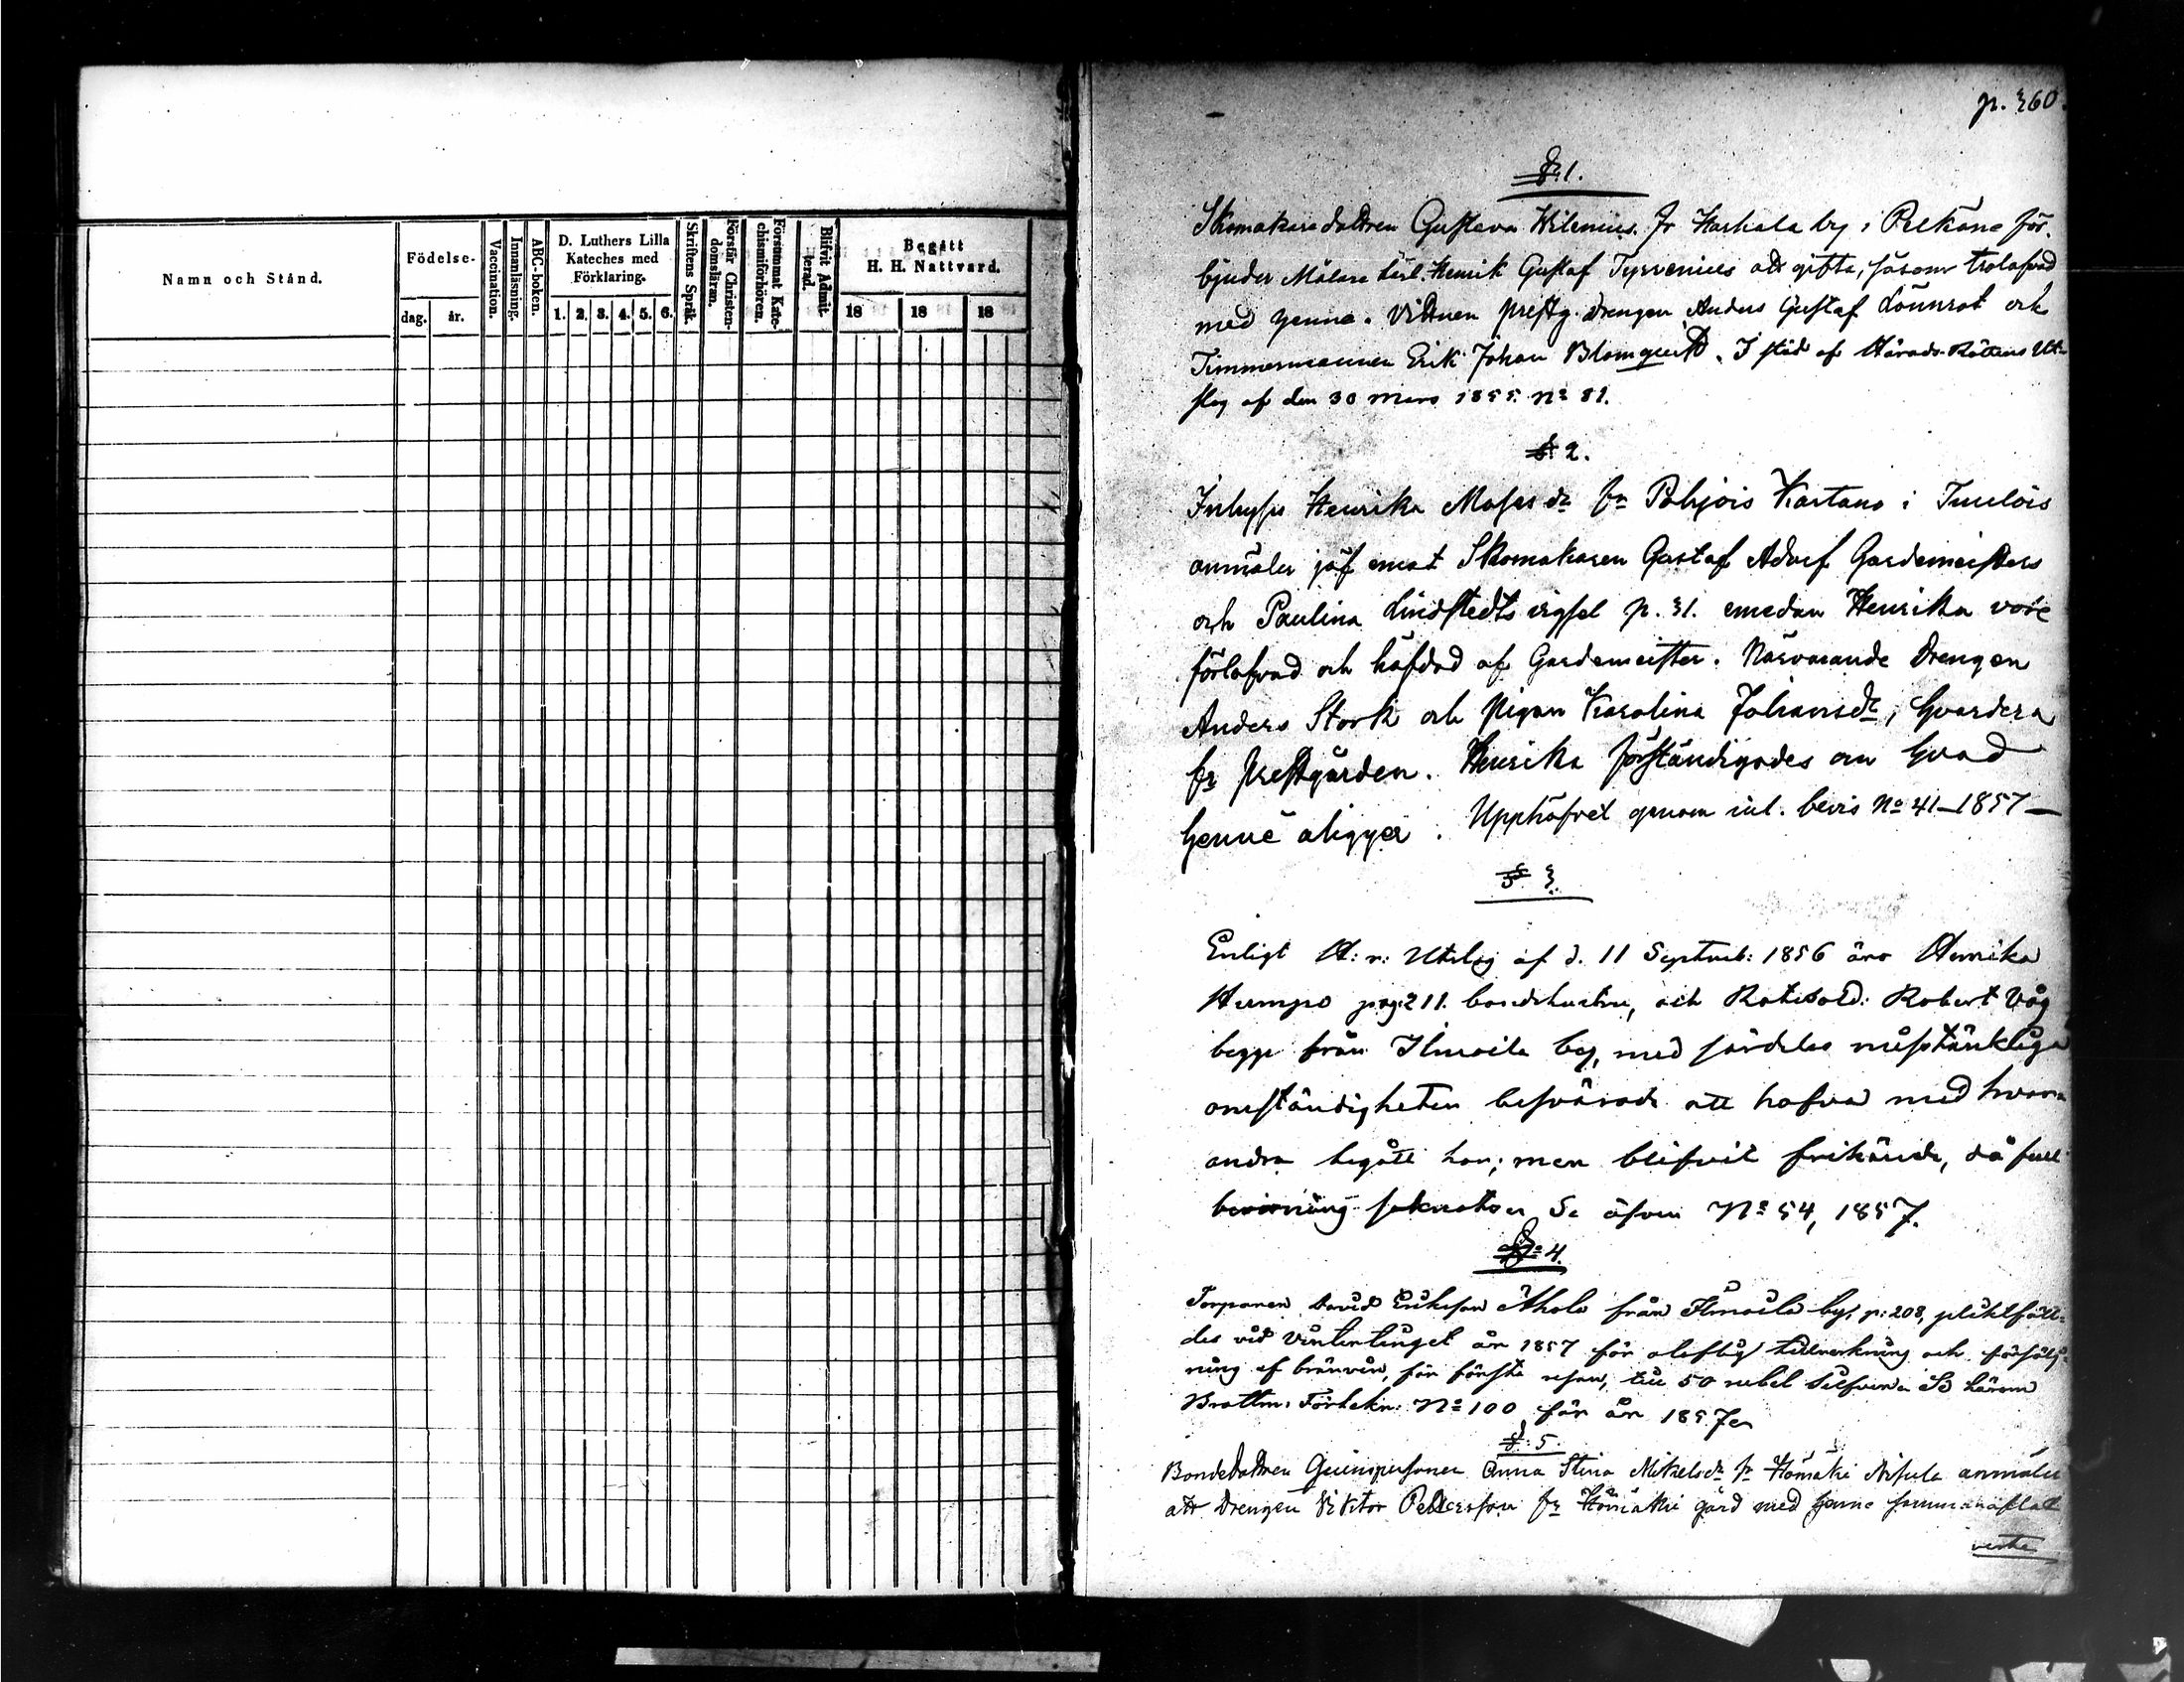 Namn och Stånd.
Födelse-
dag.
år.
Vaccination.
Innanläsning.
ABC-boken.
D. Luthers Lilla
Kateches med
Förklaring.
1. 2. 3. 4. 5. 6.
Skriftens Språk.
Förstår Christen-
domsläran.
Försummat Kate-
chismiförhören.
Blifvit Admit-
terad.
Begått
H. H. Nattvard.
18 18 18
p. 360.
§ 1.
Skomakare dottren Gustava Wilenius fr Harhala by i Pelkäne för-
bjuder Målare Lärl. Henrik Gustaf Tyrvenius att gifta, såsom trolofvad
med henne. Vittnen prestg. drengen Anders Gustaf Lönnrot och
Timmermannen Erik Johan Blomqvist. I stöd af Härads-Rättens Ut-
slag af den 30 Mars 1855. No 81.
§ 2.
Inhyses Henrika Mosesdr fr Pohjois Kartano i Tuulois
anmäler jäf emot Skomakaren Gustaf Adolf Gardemeisters
och Paulina Lindstedts vigsel p. 31. emedan Henrika vore
förlofvad och häfdad af Gardemeister. Närvarande Drengen
Anders Stork och Pigan Karolina Johansdr, hvardera
fr Prestgården. Henrika förständigades om hvad
henne åligger. Upphäfvet genom inl. bevis No 41-1857-
§ 3.
Enligt H: r: Utslag af d. 11 Septemb: 1856 äro Henrika
Humpo pag: 211. bondehustru, och Rotesold: Robert Våg
begge från Ilmoila by, med särdeles misstänkliga
omständigheter besvärade att hafva med hvar-
andra begått hor; men blifvit frikände, då full
bevisning saknades. Se äfven No 54, 1857.
§ 4.
Torparen David Eriksson Ahola från Ilmoila by, p: 208, pliktfäll-
des vid Vintertinget år 1857 för olaflig tillverkning och försälj-
ning af bränvin, för första resan, till 50 rubel Silfver. Se härom
Brottm: Förtekn: No 100 för år 1857.
§ 5.
Bondedottren Qvinspersonen Anna Stina Mikelsdr fr Hömäki Arfula anmäler
att Drengen Viktor Pettersson fr Hömäki gård med henne sammanaflat
verte